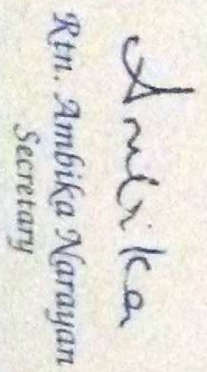 Ambika
Rtn. Ambika Narayan
Secretary